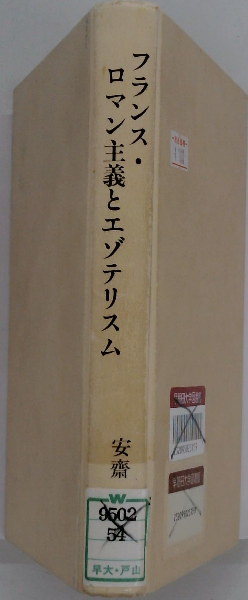 フランス・
ロマン主義とエゾテリスム
安齋
W
9502
54
早大・戸山